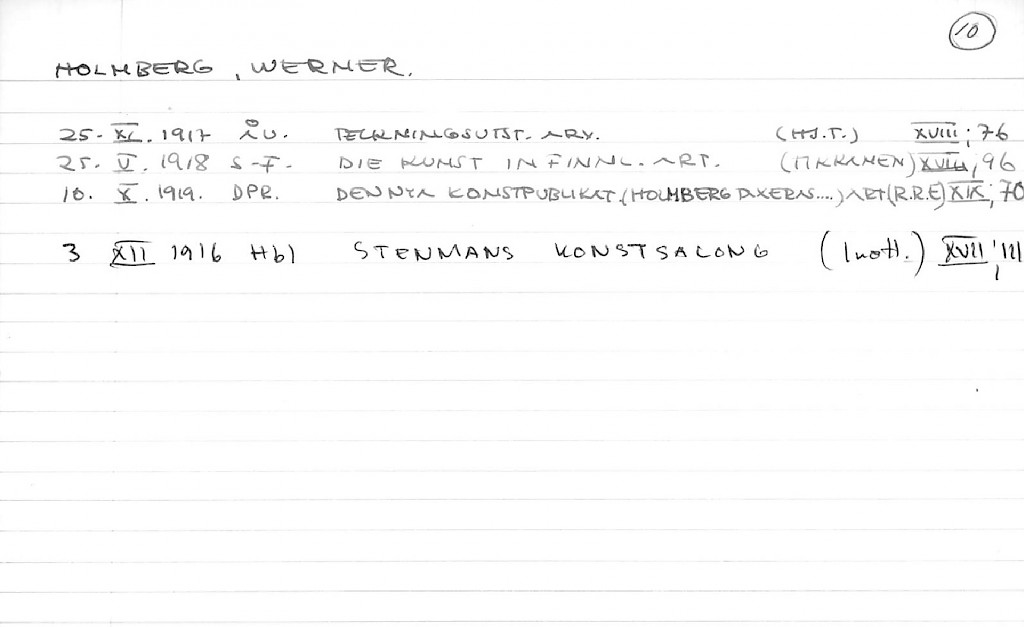 10
HOLMBERG, WERNER.
25. XI. 1917 ÅU. TECKNINGSUTST. ARK. (HJ.T.) XVIII; 76
25. V. 1918 S-F. DIE KUNST IN FINNL. ART. (TIKKANEN) XVIII, 96
10. X. 1919. DPR. DEN NYA KONSTPUBLIKAT. (HOLMBERG TAXERAS....) ART (R.R.E) XIX; 70
3 XII 1916 Hbl STENMANS KONSTSALONG (1 notl.) XVII, 111